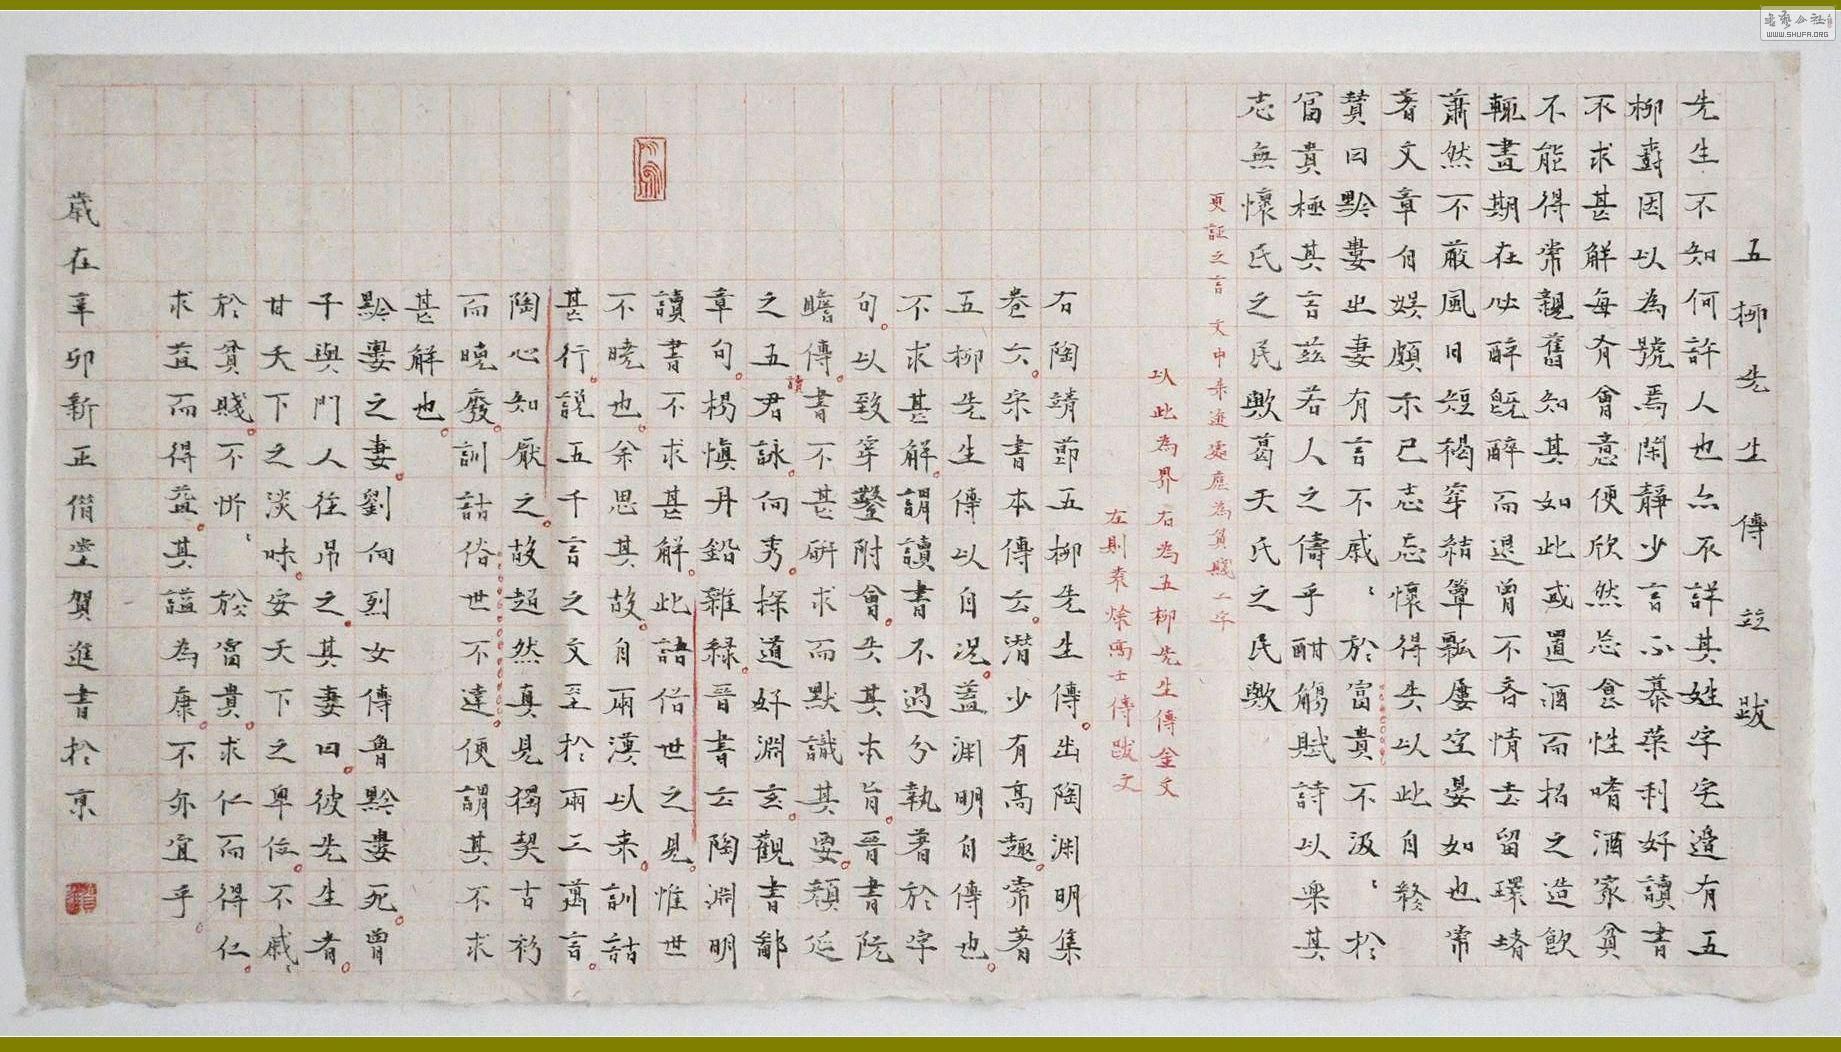 五柳先生傳竝跋
先生不知何許人也亦不詳其姓字宅邊有五
柳樹因以為號焉閑靜少言不慕榮利好讀書
不求甚解每有會意便欣然忘食性嗜酒家貧
不能得常親舊知其如此或置酒而招之造飲
輒盡期在必醉既醉而退曾不吝情去留環堵
蕭然不蔽風日短褐穿結簞瓢屢空晏如也常
著文章自娛頗示己志忘懷得失以此自終
贊曰黔婁之妻有言不戚〻於富貴不汲〻於
富貴極其言茲若人之儔乎酣觴賦詩以樂其
志無懷氏之民歟葛天氏之民歟
更証之言 文中朱迹處應為貧賤二字
以此為界右為五柳先生傳全文
左則袁燦高士傳跋文
右陶靖節五柳先生傳。出陶淵明集
卷六。宋書本傳云。潛少有高趣。常著
五柳先生傳以自況。蓋淵明自傳也。
不求甚解。謂讀書不過分執著於字
句。以致穿鑿附會。失其本旨。晉書阮
瞻傳。讀書不甚研求而默識其要。顏延
之五君詠。向秀。探道好淵玄。觀書鄙
章句。楊慎丹鉛雜録。晉書云陶淵明
讀書不求甚解。此語俗世之見。惟世
不曉也。余思其故。自兩漢以来。訓詁
甚行。說五千言之文至於兩二萬言。
陶心知厭之。故超然真見獨契古初
而曉廢。訓詁俗世不達。便謂其不求
甚解也。
黔婁之妻。劉向烈女傳魯黔婁死。曾
子與門人往吊之。其妻曰。彼先生者。
甘天下之淡味。安天下之卑位。不戚〻
於貧賤。不忻〻於富貴。求仁而得仁。
求益而得益。其謚為康。不亦宜乎。
歲在辛卯新正僭堂賀進書於京
WWW.SHUFA.ORG